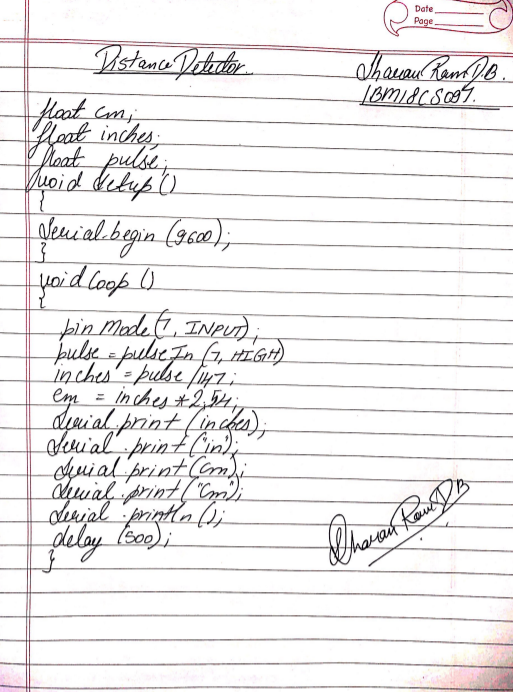 Date
Page
Distance Detector.
Sharan Ram D.B.
1BM18CS097.
float cm;
float inches;
float pulse;
void setup ()
{
Serial.begin (9600);
}
void loop ()
{
pinMode (7, INPUT);
pulse = pulseIn (7, HIGH)
inches = pulse / 147;
cm = inches * 2.54;
Serial.print (inches);
Serial.print ("in");
Serial.print (cm);
Serial.print ("cm");
Serial.println ();
delay (500);
}
Sharan Ram D B